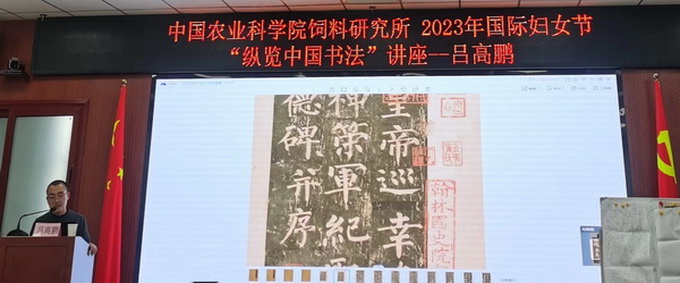 中国农业科学院饲料研究所 2023年国际妇女节
“纵览中国书法”讲座--吕高鹏
皇帝巡幸
神策軍紀
德碑并序
翰林國史院
吕高鹏